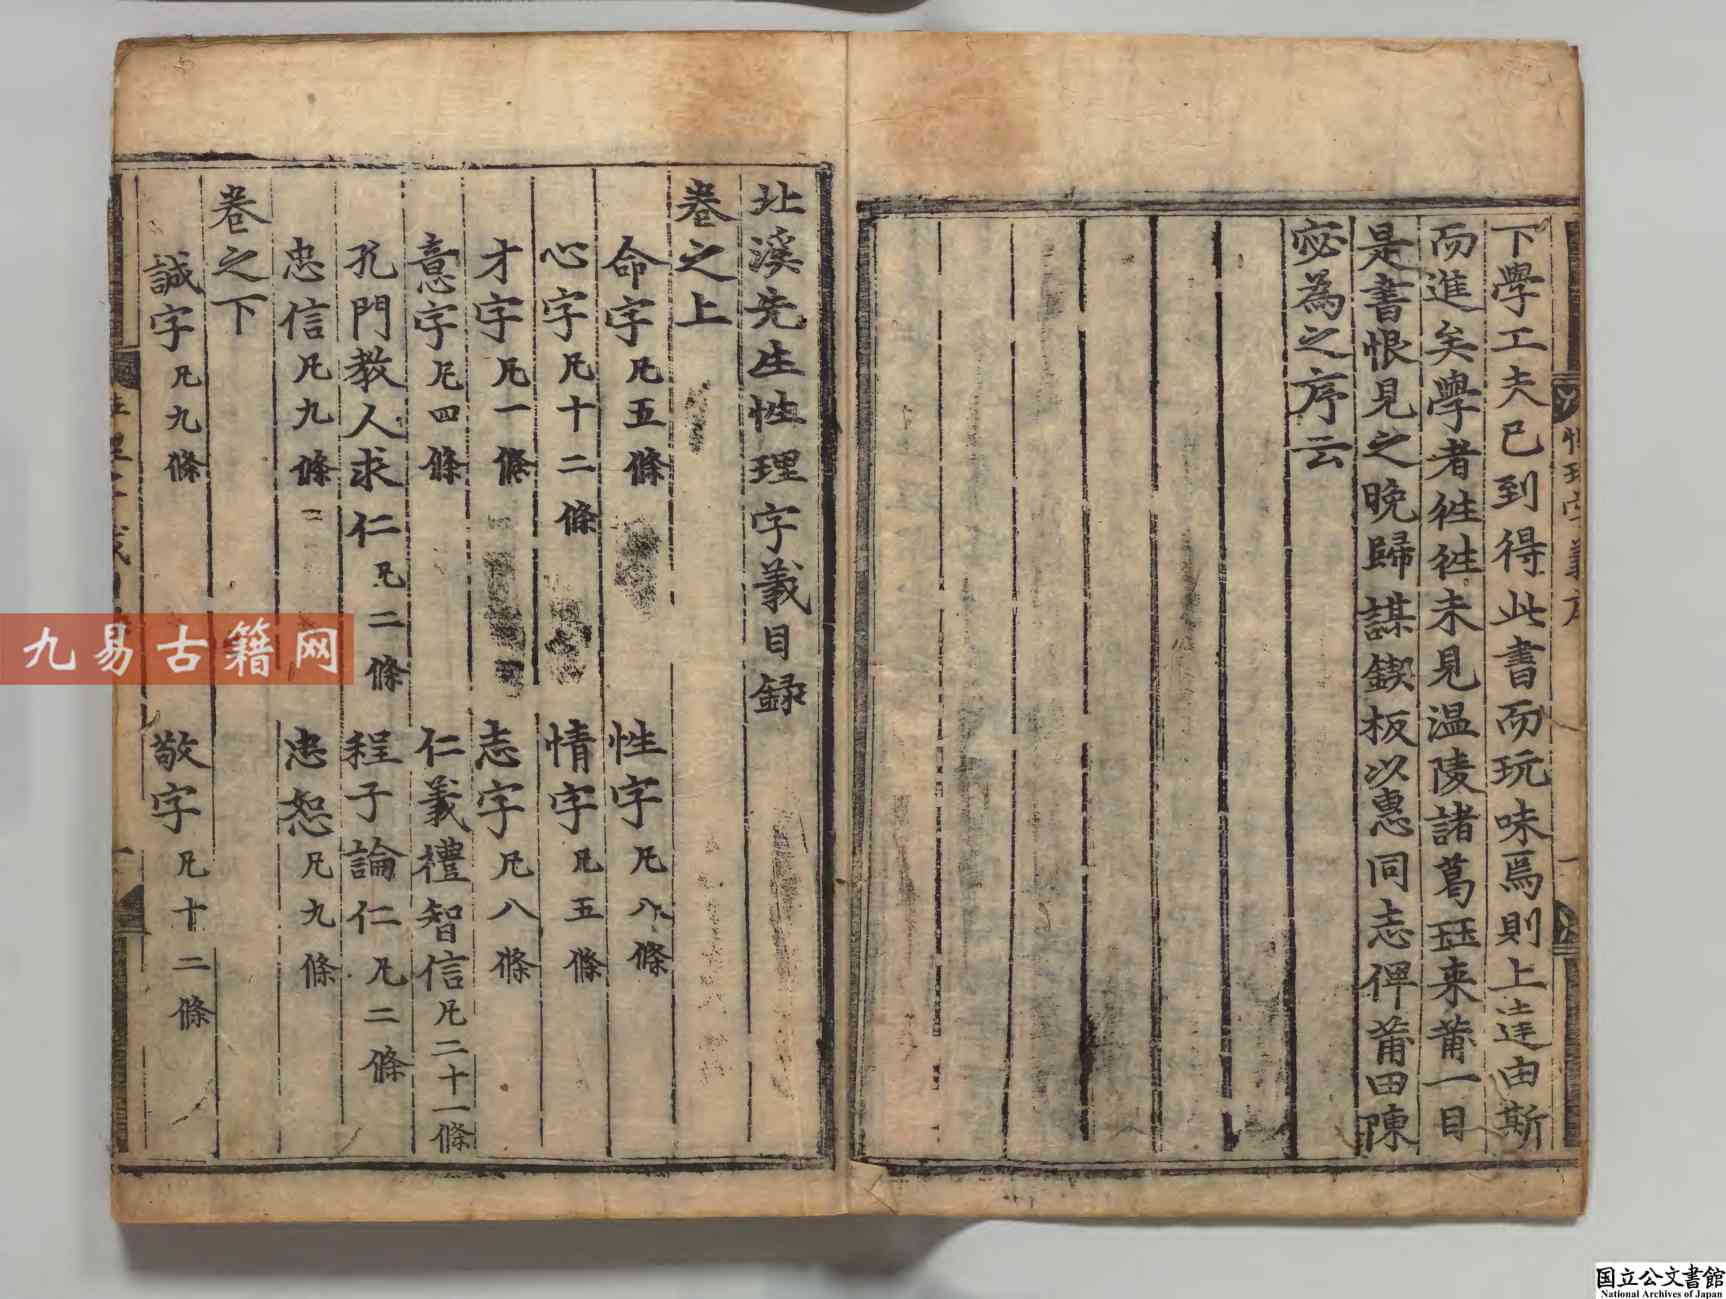 下學工夫已到得此書而玩味焉則上達由斯
而進矣學者徃徃未見温陵諸葛珏来莆一日
是書恨見之晚歸謀鋟板以惠同志俾莆田陳
宓為之序云
性理字義序
北溪先生性理字義目録
卷之上
命字凡五條 性字凡八條
心字凡十二條 情字凡五條
才字凡一條 志字凡八條
意字凡四條 仁義禮智信凡二十一條
孔門教人求仁凡二條 程子論仁凡二條
忠信凡九條 忠恕凡九條
卷之下
誠字凡九條 敬字凡十二條
九易古籍网
国立公文書館
National Archives of Japan